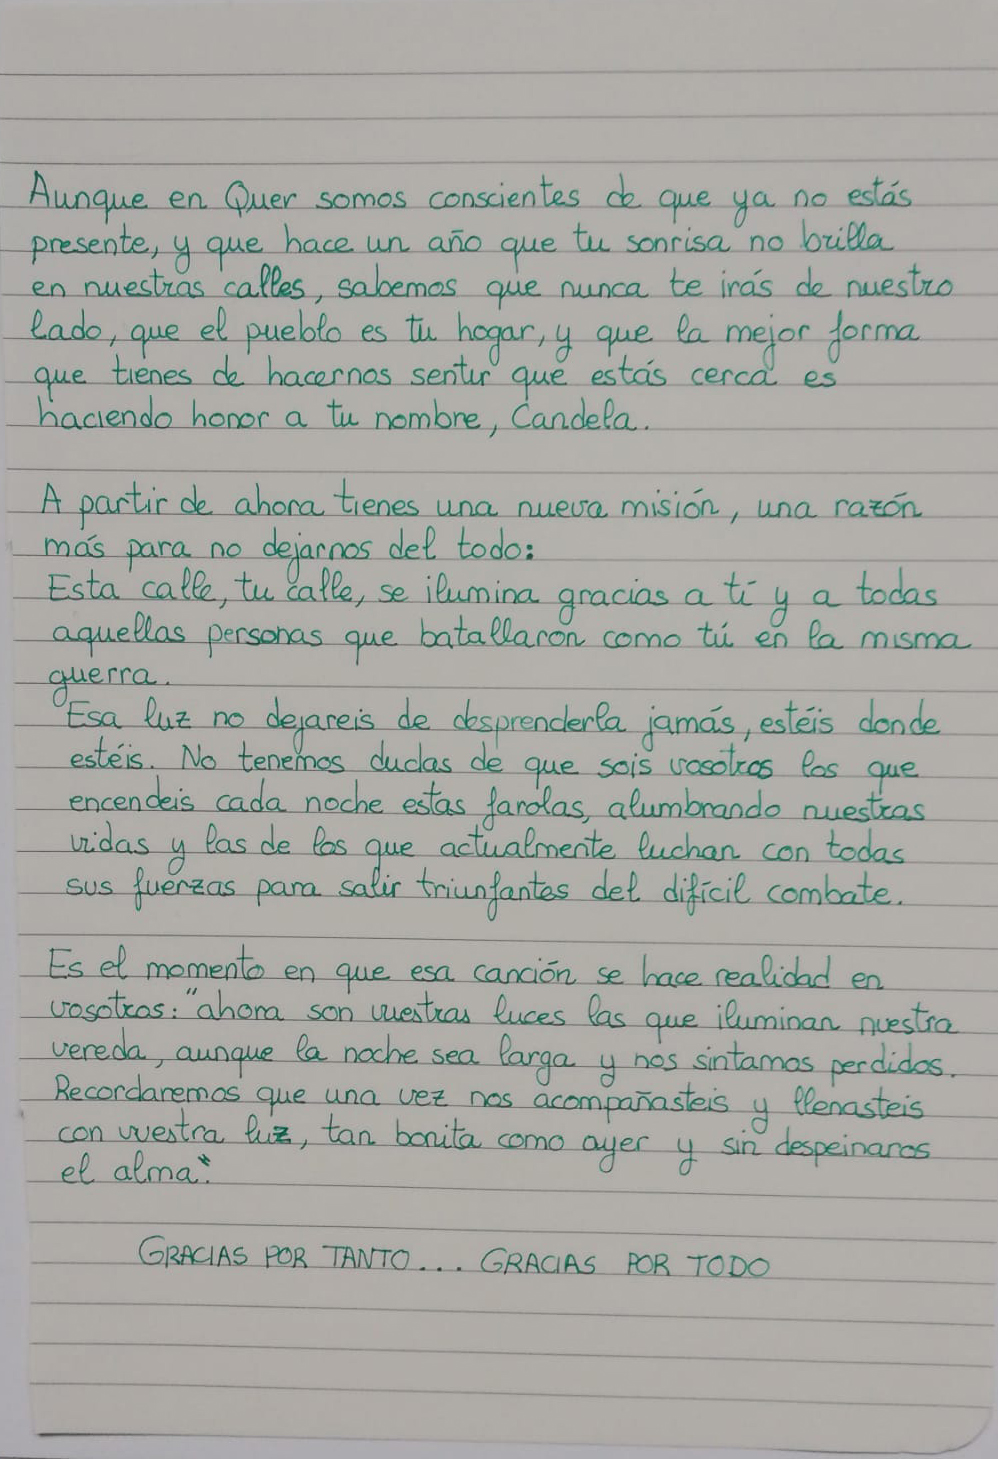 Aunque en Quer somos conscientes de que ya no estás
presente, y que hace un año que tu sonrisa no brilla
en nuestras calles, sabemos que nunca te irás de nuestro
lado, que el pueblo es tu hogar, y que la mejor forma
que tienes de hacernos sentir que estás cerca es
haciendo honor a tu nombre, Candela.
A partir de ahora tienes una nueva misión, una razón
más para no dejarnos del todo:
Esta calle, tu calle, se ilumina gracias a tí y a todas
aquellas personas que batallaron como tú en la misma
guerra.
Esa luz no dejareis de desprenderla jamás, estéis donde
estéis. No tenemos dudas de que sois vosotros los que
encendeis cada noche estas farolas, alumbrando nuestras
vidas y las de los que actualmente luchan con todas
sus fuerzas para salir triunfantes del difícil combate.
Es el momento en que esa canción se hace realidad en
vosotros: "ahora son vuestras luces las que iluminan nuestra
vereda, aunque la noche sea larga y nos sintamos perdidos.
Recordaremos que una vez nos acompañasteis y llenasteis
con vuestra luz, tan bonita como ayer y sin despeinaros
el alma".
GRACIAS POR TANTO... GRACIAS POR TODO